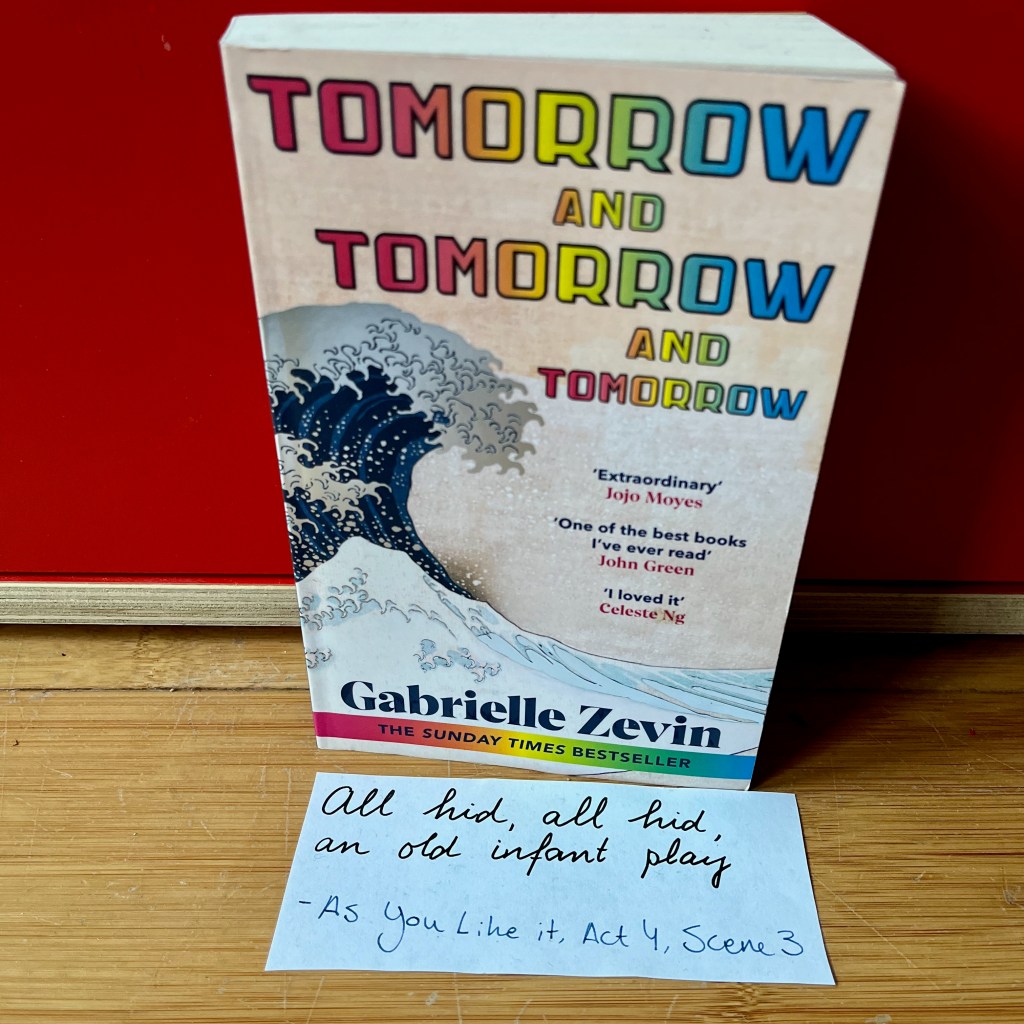 TOMORROW
AND
TOMORROW
AND
TOMORROW
'Extraordinary'
Jojo Moyes
'One of the best books
I've ever read'
John Green
'I loved it'
Celeste Ng
Gabrielle Zevin
THE SUNDAY TIMES BESTSELLER
All hid, all hid,
an old infant play
- As You Like it, Act 4, Scene 3